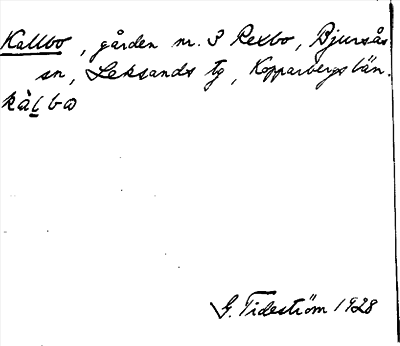 Kallbo, gården nr. 3 Rexbo, Bjursås
sn, Leksands tg, Kopparbergs län.
kàl̲bɷ
G. Tideström 1928